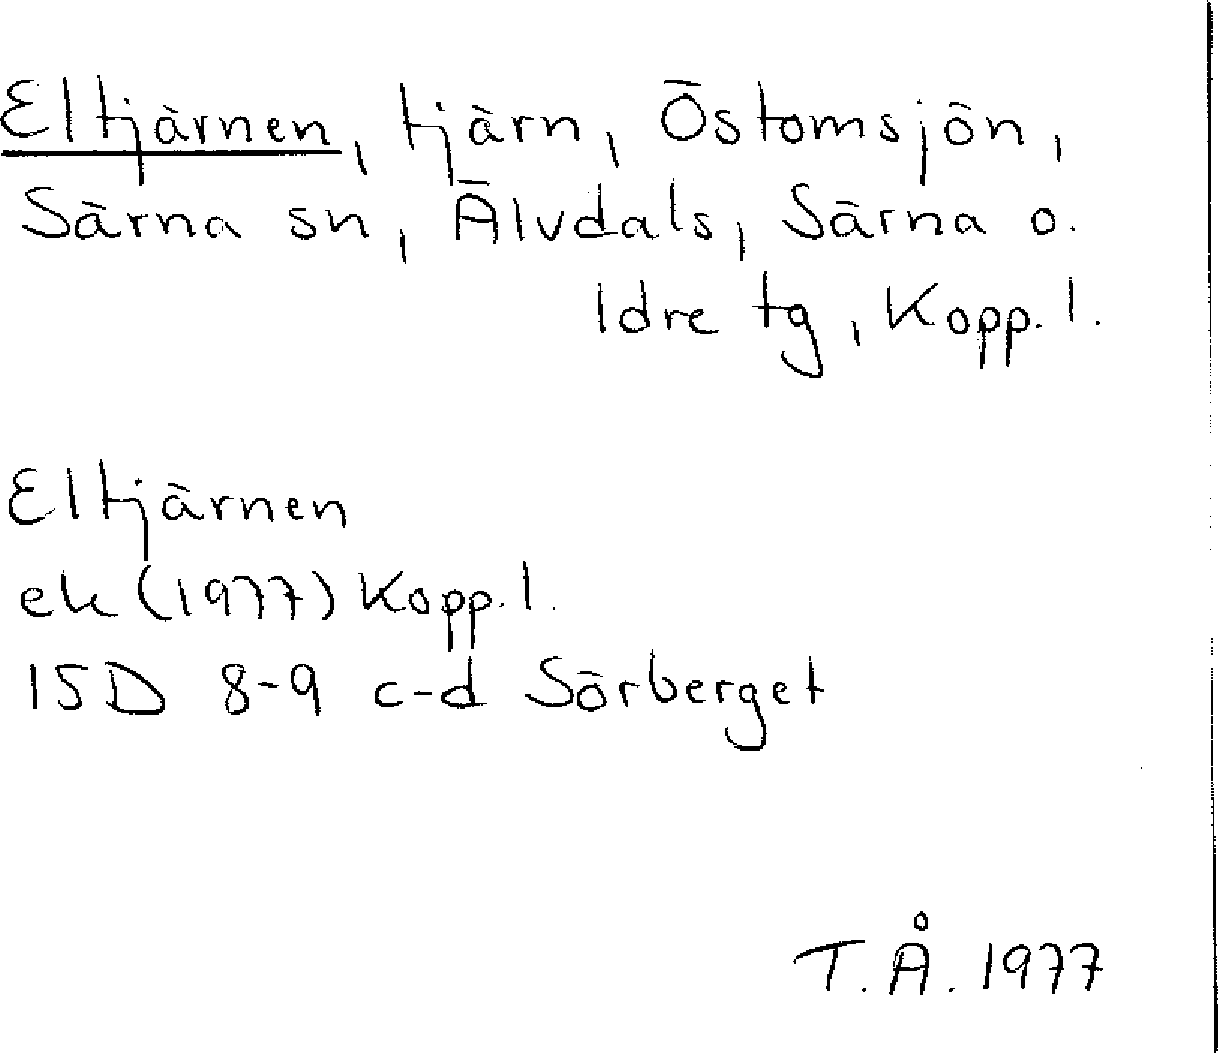 Eltjärnen, tjärn, Östomsjön,
Särna sn, Älvdals, Särna o.
Idre tg, Kopp. l.
Eltjärnen
ek (1977) Kopp. l.
15D 8-9 c-d Sörberget
T.Å. 1977